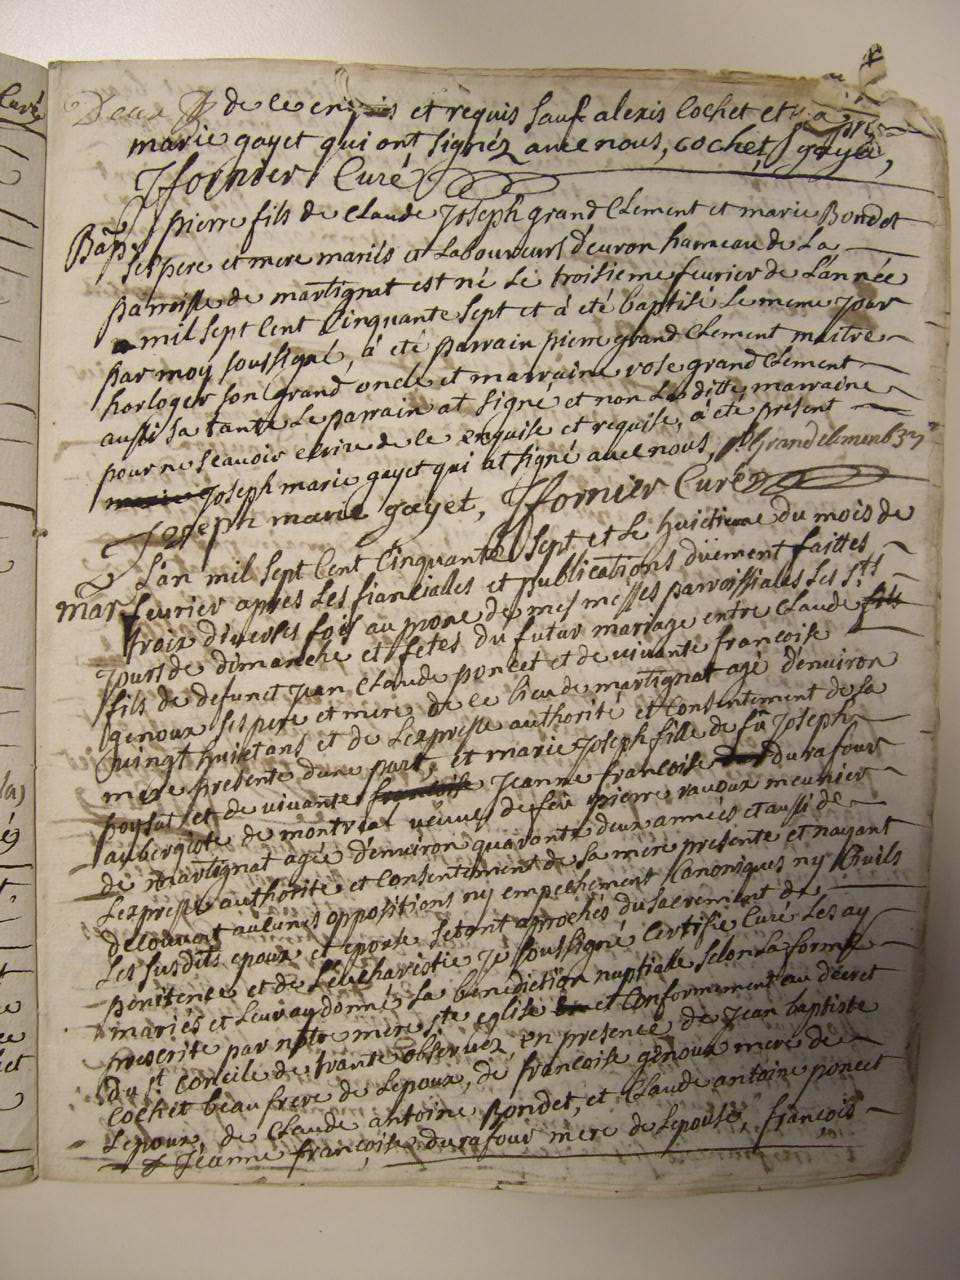 de ce enquis et requis sauf alexis Cochet et
marie gayet qui ont signéz avec nous, cochet, j gayet,
Jfornier Curé
Bap. pierre fils de Claude Joseph grand Clement et marie Bondet
ses pere et mere mariés et Laboureurs d'euron hameau de La
parroisse de martignat est né Le troisieme feurier de L'année
mil sept Cent Cinquante sept et à été baptisé Le meme jour
par moy soussigné, à été parrain pierre grand Clement maitre
horloger son grand oncle et marraine rose grand Clement
aussi sa tante Le parrain at signé et non La ditte marraine
pour ne sçauoir ecrire de ce enquise et requise, à été present
Joseph marie gayet qui at signé avec nous, pr. Grandclement
Joseph marie gayet, Jfornier Curé
Mar L'an mil sept Cent Cinquante sept et Le huictieme du mois de
feurier apres Les fiancialles et publications düement faittes
trois diuerses fois au prone de mes messes parroissiales Les sts
Jours de dimanche et fetes du futur mariage entre Claude fils
fils de defunct Jean Claude poncet et de viuante francoise
genoux ses pere et mere de ce lieu de martignat agé d'enuiron
vuingt huict ans et de L'expresse authorité et Consentement de sa
mere presente d'une part, et marie Joseph fille de fû Joseph
poysat et de viuante francoise Jeanne francoise durafour
aubergiste de montreal veuue de feû pierre rauoux meunier
de martignat agée d'enuiron quarante deux années et aussi de
L'expresse authorité et Consentement de sa mere presente et nayant
decouuert aucunes oppositions ny empechement Canoniques ny Ciuils
Les susdits epoux et epouse s'etant aprochés du sacrement de
penitence et de L'eucharistie Je soussigné Certifie Curé Les ay
mariés et Leur ay donné La bénédiction nuptialle selon La forme
prescrite par notre mere ste eglise et Conformement au décret
du st Concile de trante obseruéz, en presence de Jean baptiste
Cochet beau frere de Lepoux, de francoise genoux mere de
Lepoux, de Claude antoine Bondet, et Claude antoine poncet
et Jeanne françoise durafour mere de Lepouse, françois